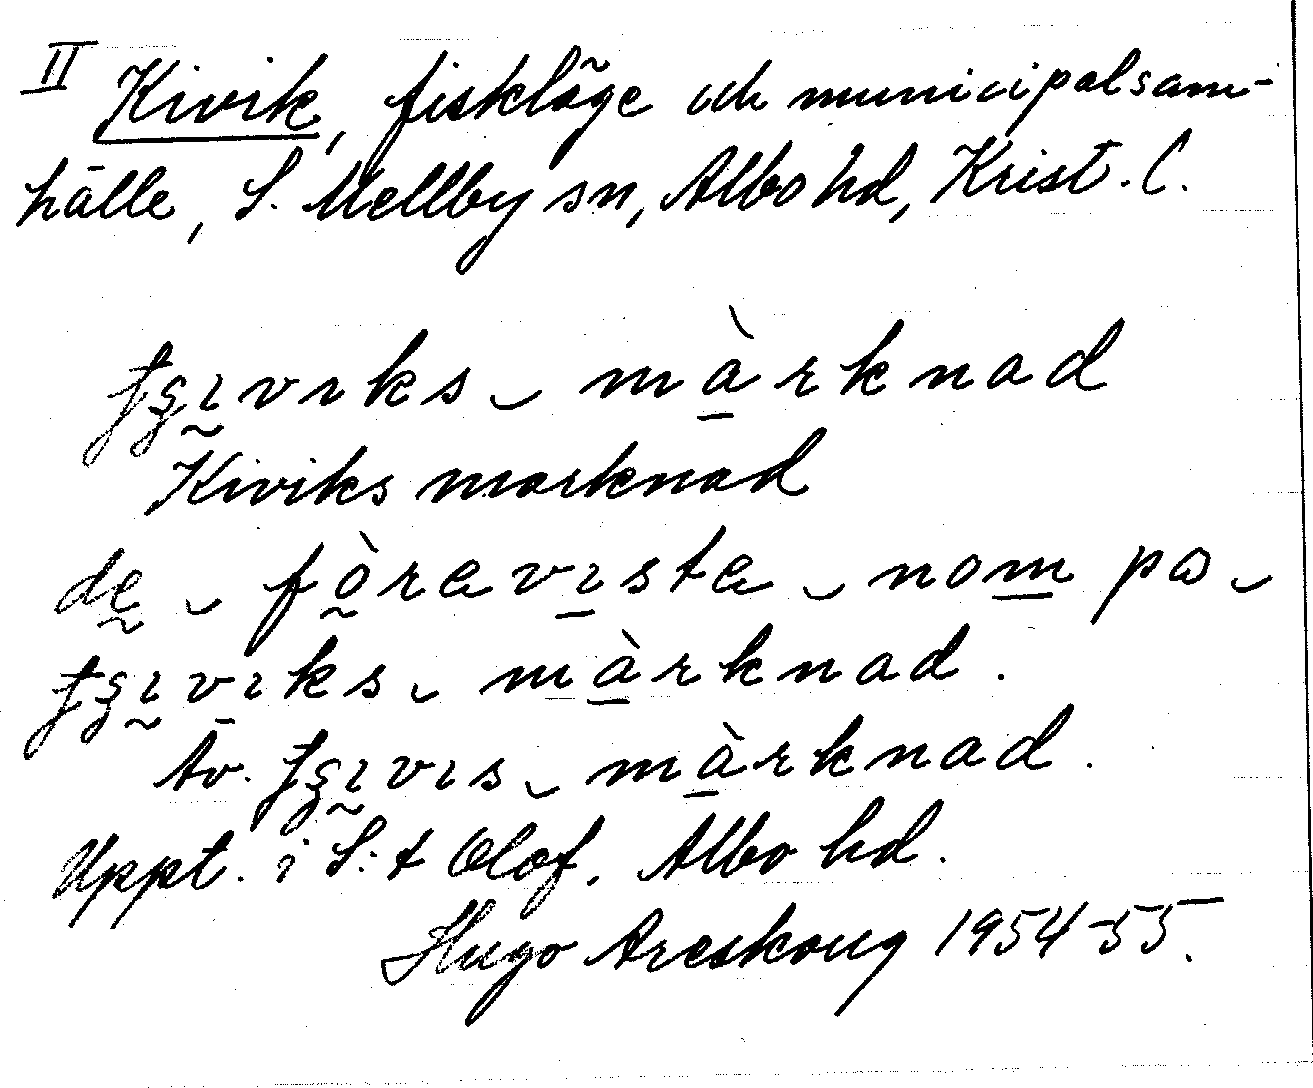 II Kivik, fiskläge och municipalsam-
hälle, S. Mellby sn, Albo hd, Krist. l.
ʈʂɪvɪks ‿ màrknad
Kiviks marknad
de ‿ fòrevɪste ‿ nom på ‿
ʈʂɪvɪks ‿ màrknad.
Äv. ʈʂɪvɪs ‿ màrknad.
Uppt. i S:t Olof. Albo hd.
Hugo Areskoug 1954-55.